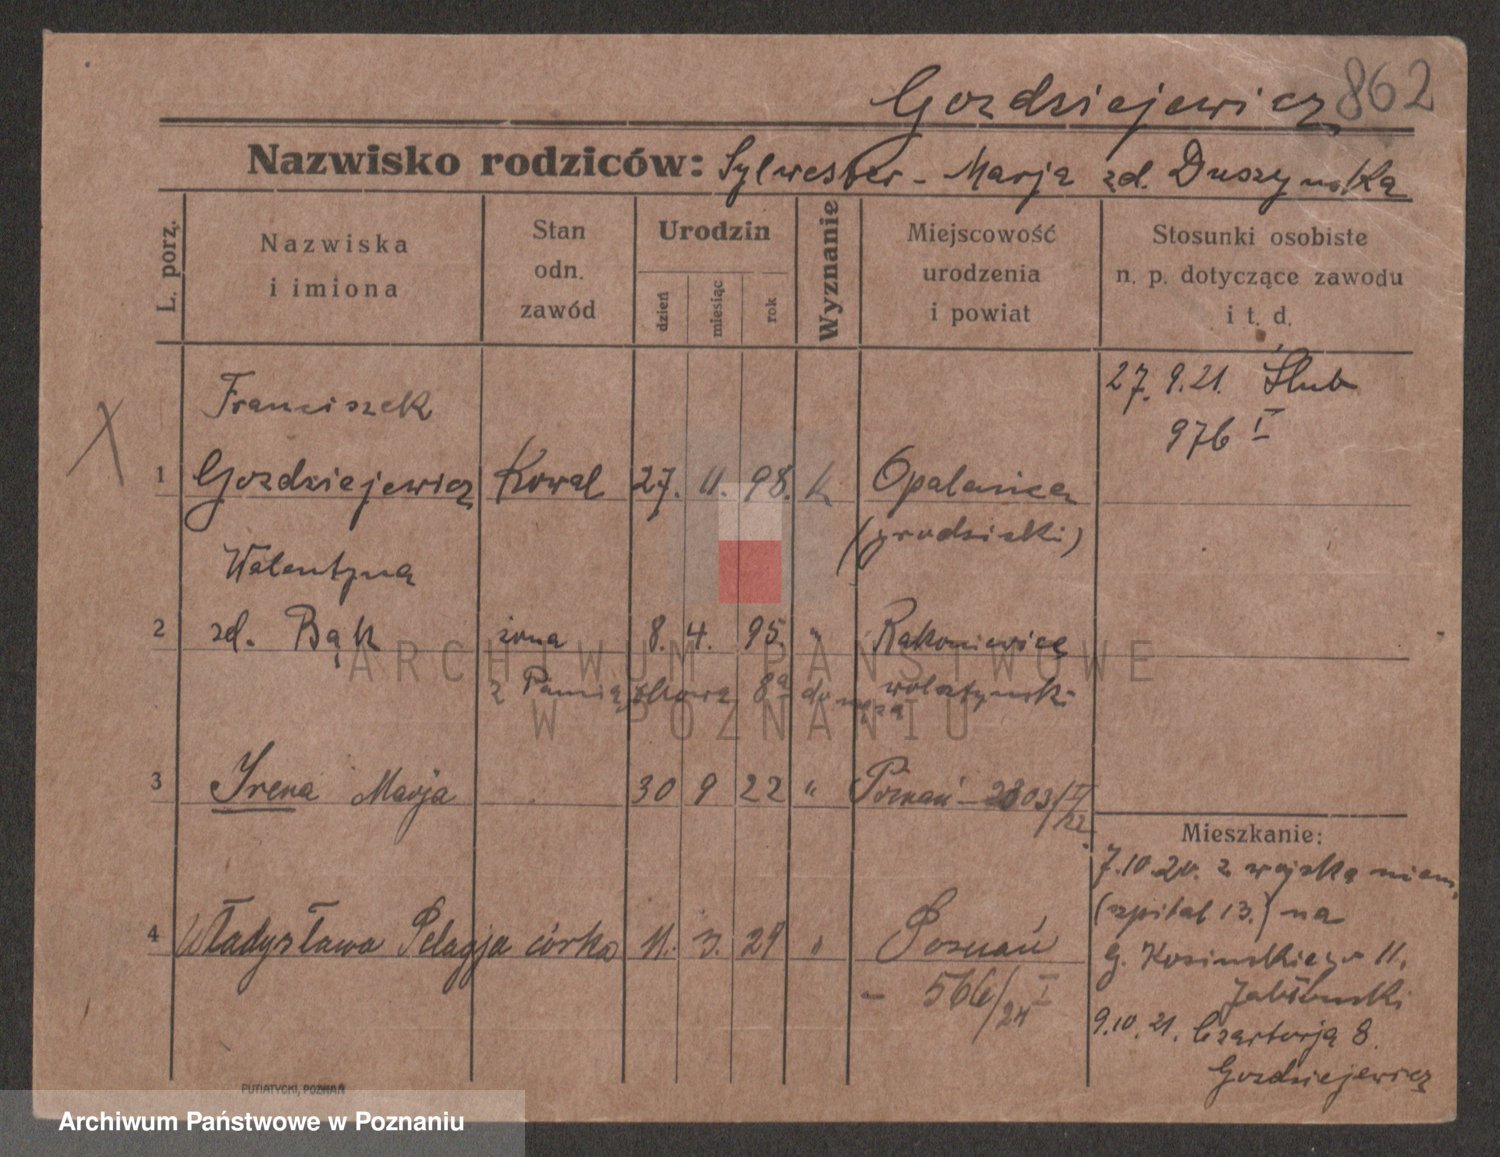 Gozdziejewicz 862
Nazwisko rodziców: Sylwester - Marja zd. Duszyńska
L. porz.
Nazwiska
i imiona
Stan
odn.
zawód
Urodzin
dzień
miesiąc
rok
Wyznanie
Miejscowość
urodzenia
i powiat
Stosunki osobiste
n. p. dotyczące zawodu
i t. d.
27. 9. 21. Ślub
976 I
X
Franciszek
1 Gozdziejewicz Kowal 27. 11. 98. k Opalenica
(grodziski)
Walentyna
2 zd. Bąk żona 8. 4. 95. " Rakoniewice
z 8a do męża wolsztyński
3 Irena Marja 30 9 22 " Poznań - 2803/I/22.
4 Władysława Pelagja córka 11. 3. 24 " Poznań
- 566/24 I
Mieszkanie:
7.10.20. z wojska niem.
(szpital 13.) na
G. 11.
9.10.21. Czartorja 8.
Gozdziejewicz
PUTIATYCKI, POZNAŃ
ARCHIWUM PAŃSTWOWE
W POZNANIU
Archiwum Państwowe w Poznaniu